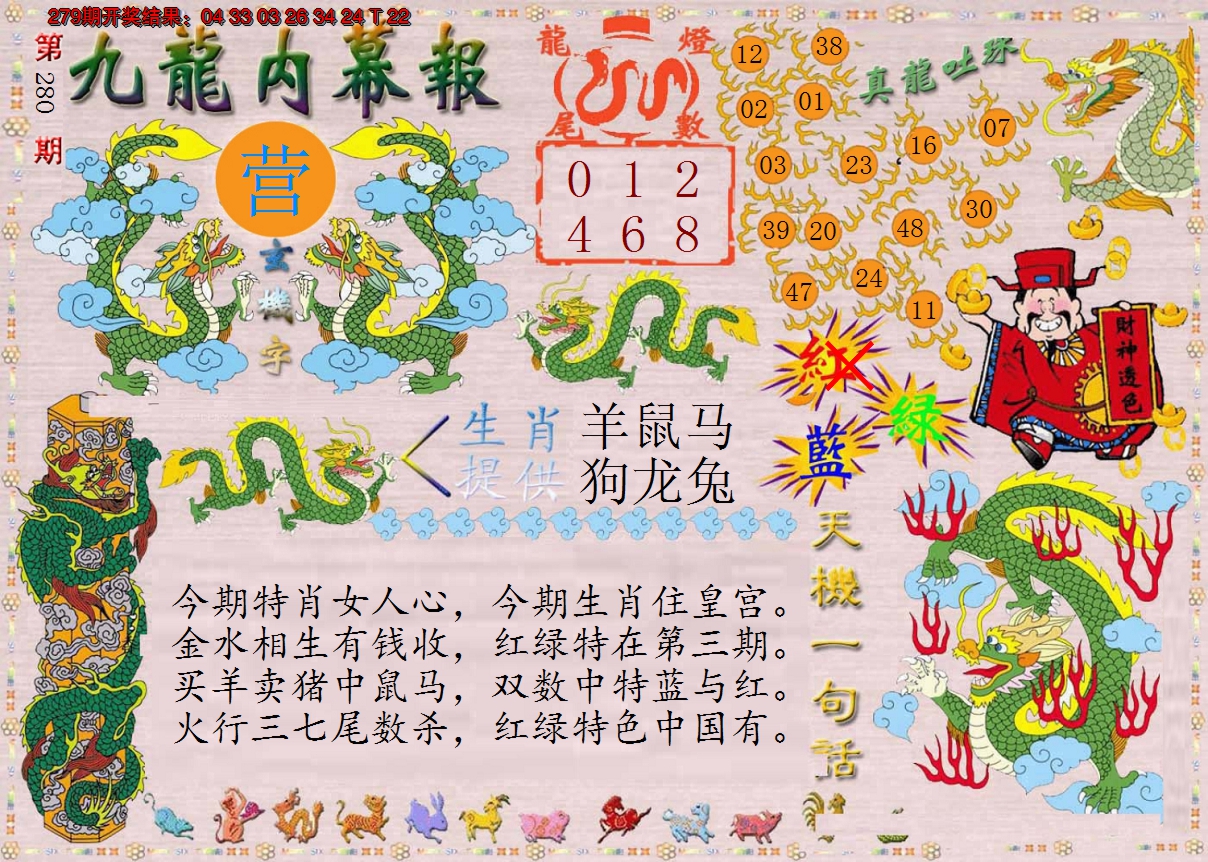 279期开奖结果：04 33 03 26 34 24 T 22
第280期
九龍内幕報
营
玄機字
龍燈尾數
0 1 2
4 6 8
真龍吐珠
12 38
02 01
16 07
03 23
39 20 48 30
47 24 11
財神透色
紅
綠
藍
生肖提供
羊鼠马
狗龙兔
天機一句话
今期特肖女人心，今期生肖住皇宫。
金水相生有钱收，红绿特在第三期。
买羊卖猪中鼠马，双数中特蓝与红。
火行三七尾数杀，红绿特色中国有。